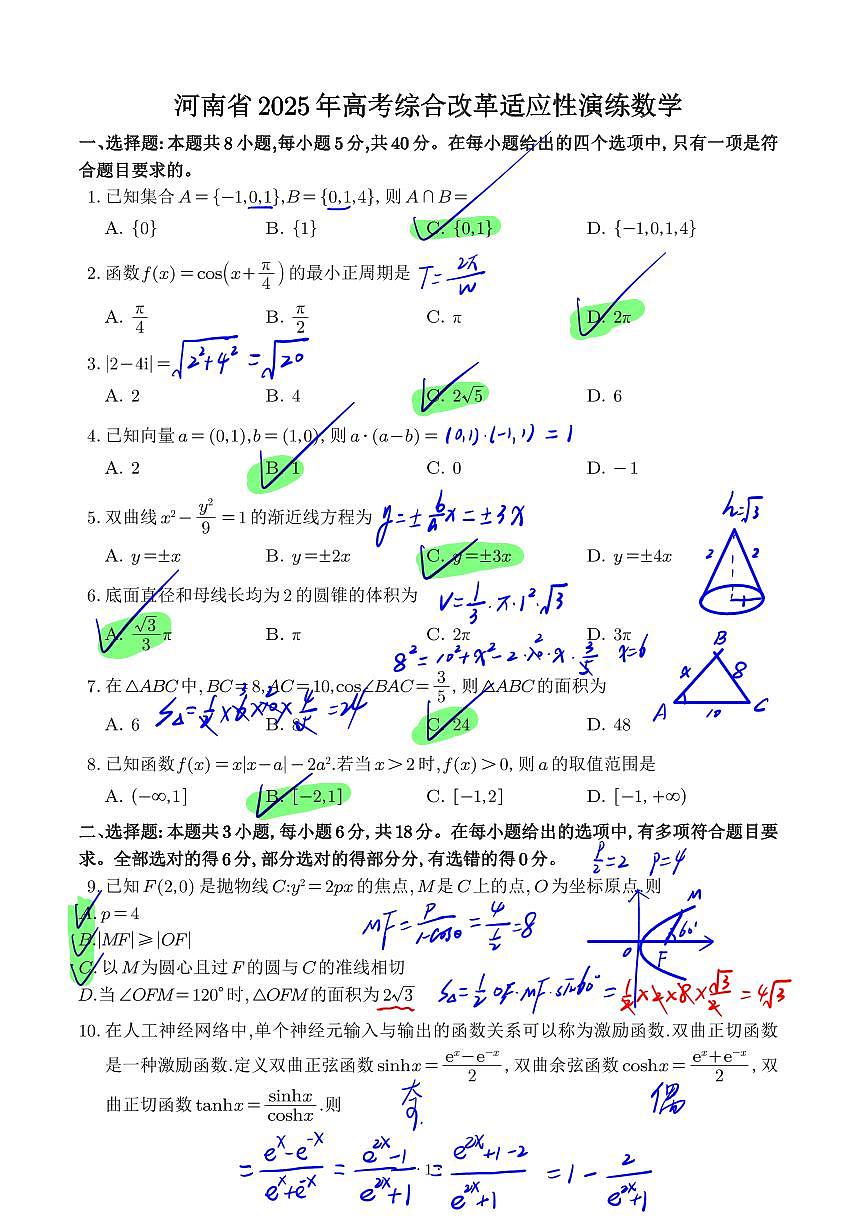 河南省2025年高考综合改革适应性演练数学
一、选择题:本题共8小题,每小题5分,共40分。在每小题给出的四个选项中,只有一项是符
合题目要求的。
1. 已知集合A={−1,0,1},B={0,1,4}, 则A∩B=
A. {0} B. {1} C. {0,1} D. {−1,0,1,4}
2. 函数f(x)=cos(x+π/4)的最小正周期是 T=2π/w
A. π/4 B. π/2 C. π D. 2π
3. |2−4i|= √(2²+4²) = √20
A. 2 B. 4 C. 2√5 D. 6
4. 已知向量a=(0,1),b=(1,0), 则a·(a−b)= (0,1)·(-1,1) = 1
A. 2 B. 1 C. 0 D. −1
5. 双曲线x²−y²/9=1的渐近线方程为 y=±b/a x=±3x
h=√3
A. y=±x B. y=±2x C. y=±3x D. y=±4x
2 2
1
6. 底面直径和母线长均为2的圆锥的体积为 V=1/3·π·1²·√3
A. √3/3 π B. π C. 2π D. 3π
8²=10²+x²-2·10·x·3/5 x=6
7. 在△ABC中, BC=8, AC=10,cos∠BAC=3/5, 则△ABC的面积为
B
x 8
A 10 C
S△=1/2×6×10×4/5=24
A. 6 B. 8 C. 24 D. 48
8. 已知函数f(x)=x|x−a|−2a².若当x>2时,f(x)>0, 则a的取值范围是
A. (−∞,1] B. [−2,1] C. [−1,2] D. [−1, +∞)
二、选择题:本题共3小题, 每小题6分, 共18分。在每小题给出的选项中, 有多项符合题目要
求。全部选对的得6分, 部分选对的得部分分, 有选错的得0分。 p/2=2 p=4
9. 已知F(2,0) 是抛物线C:y²=2px的焦点, M是C上的点, O为坐标原点.则
A. p=4
M
60°
O F
B.|MF|≥|OF|
MF=p/(1-cosθ)=4/(1/2)=8
C. 以M为圆心且过F的圆与C的准线相切
D.当∠OFM=120°时,△OFM的面积为2√3 S△=1/2 OF·MF·sin60°=1/2×2×8×√3/2=4√3
10. 在人工神经网络中,单个神经元输入与输出的函数关系可以称为激励函数.双曲正切函数
是一种激励函数.定义双曲正弦函数sinhx=(eˣ−e⁻ˣ)/2, 双曲余弦函数coshx=(eˣ+e⁻ˣ)/2, 双
曲正切函数tanhx=sinhx/coshx.则
奇 偶
=(eˣ-e⁻ˣ)/(eˣ+e⁻ˣ)=(e²ˣ-1)/(e²ˣ+1)=(e²ˣ+1-2)/(e²ˣ+1)=1-2/(e²ˣ+1)
· 1 ·